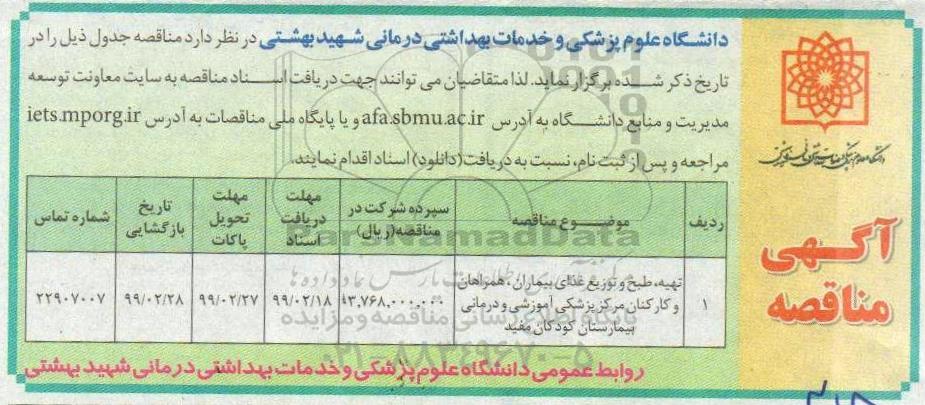 دانشگاه علوم پزشکی و خدمات بهداشتی درمانی شهید بهشتی در نظر دارد مناقصه جدول ذیل را در
تاریخ ذکر شده برگزار نماید. لذا متقاضیان می توانند جهت دریافت اسناد مناقصه به سایت معاونت توسعه
مدیریت و منابع دانشگاه به آدرس afa.sbmu.ac.ir و یا پایگاه ملی مناقصات به آدرس iets.mporg.ir
مراجعه و پس از ثبت نام، نسبت به دریافت (دانلود) اسناد اقدام نمایند.
آگهی
مناقصه
ردیف
موضوع مناقصه
سپرده شرکت در
مناقصه (ریال)
مهلت
دریافت
اسناد
مهلت
تحویل
پاکات
تاریخ
بازگشایی
شماره تماس
۱
تهیه، طبخ و توزیع غذای بیماران، همراهان
و کارکنان مرکز پزشکی آموزشی و درمانی
بیمارستان کودکان مفید
۹۹/۰۲/۱۸
۹۹/۰۲/۲۷
۹۹/۰۲/۲۸
۲۲۹۰۷۰۰۷
ParsNamadData
پایگاه اطلاع رسانی مناقصه و مزایده
۰۲۱-۸۸۳۴۹۶۷۰-۵
روابط عمومی دانشگاه علوم پزشکی و خدمات بهداشتی درمانی شهید بهشتی